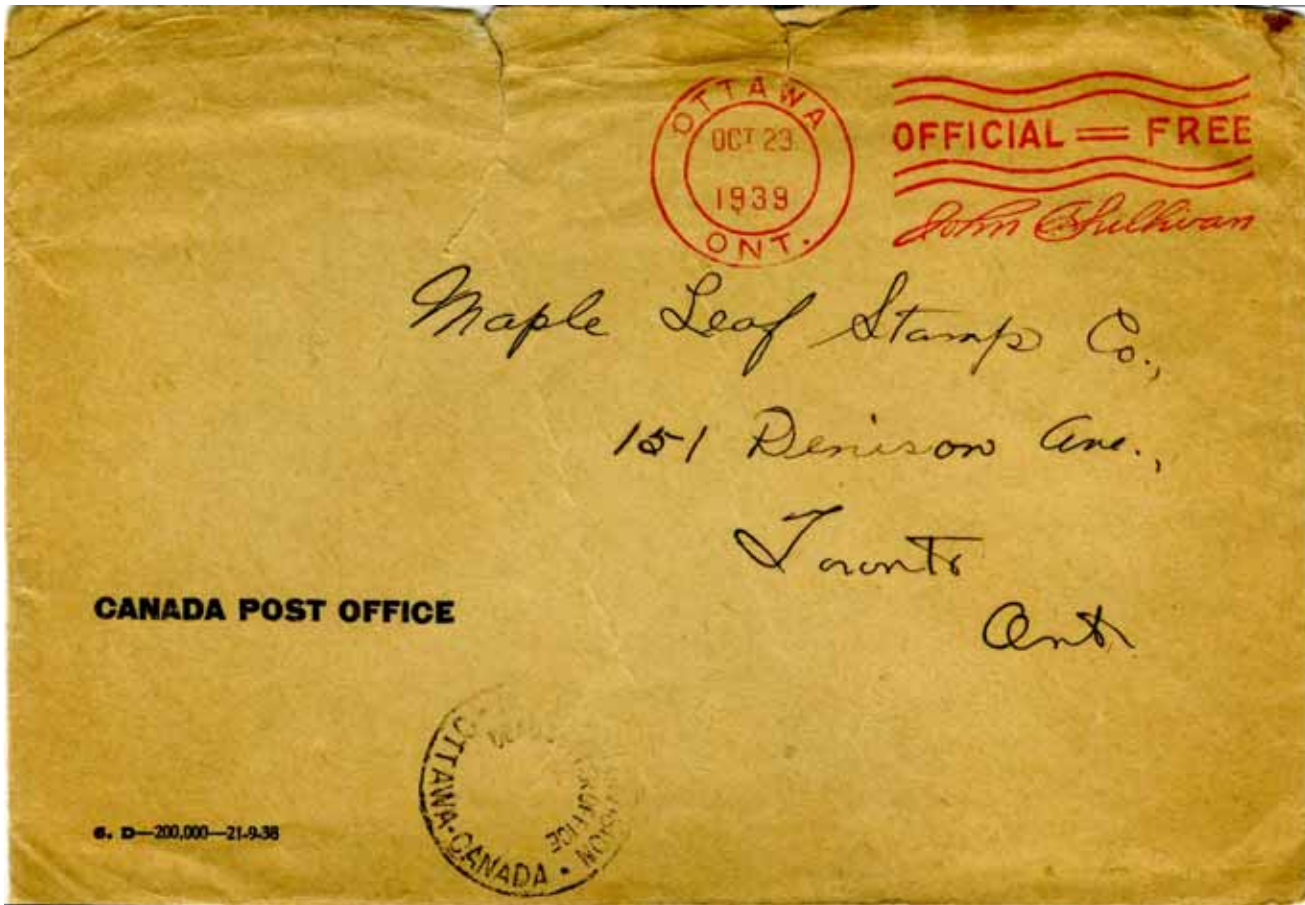 OTTAWA
OCT 23
1939
ONT.
OFFICIAL = FREE
John
Maple Leaf Stamp Co.,
151 Denison Ave.,
Toronto
Ont.
CANADA POST OFFICE
OTTAWA·CANADA·
OFFICE
6. D—200,000—21-9-38